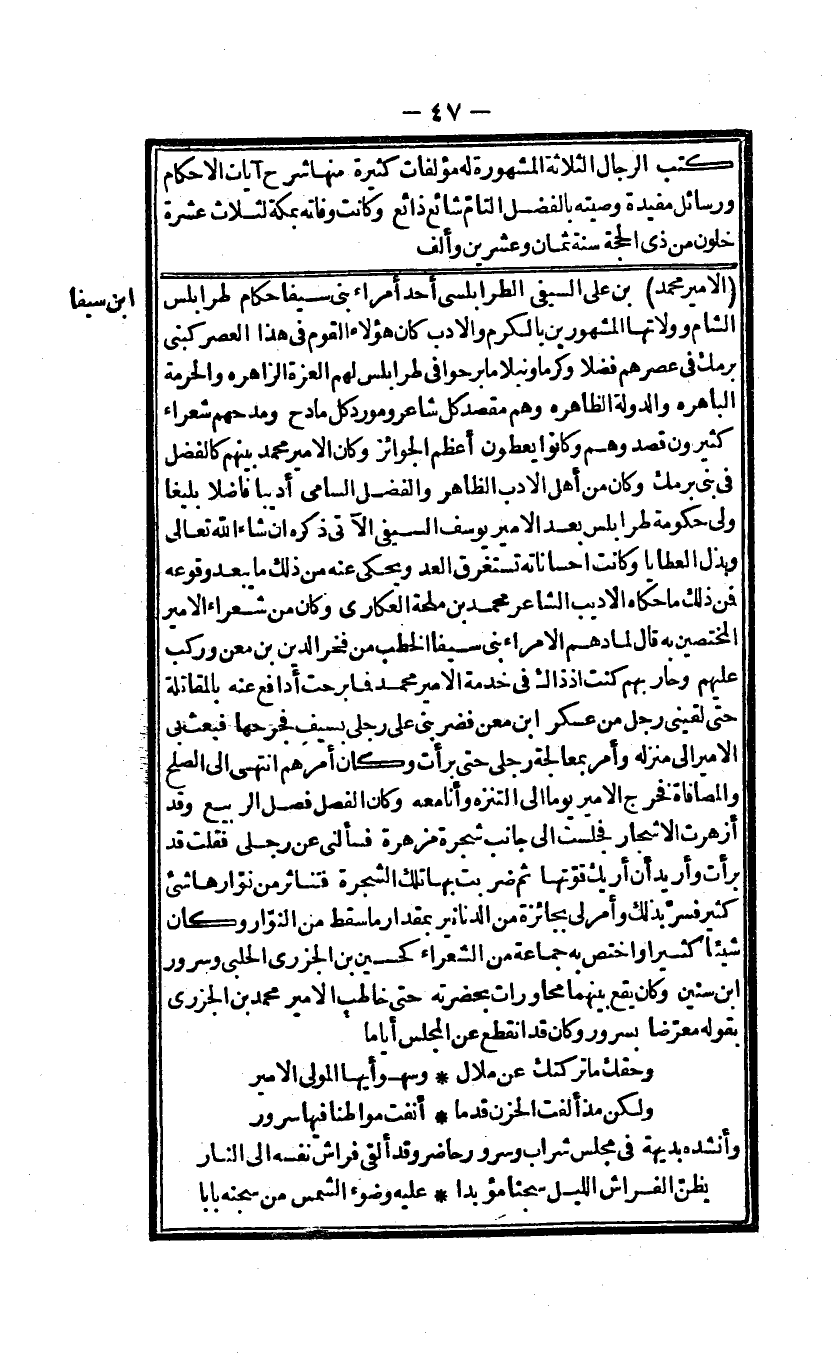 — ٤٧ —
كتب الرجال الثلاثة المشهورة له مؤلفات كثيرة منها شرح آيات الاحكام
ورسائل مفيدة وصيته بالفضل التام شائع ذائع وكانت وفاته بمكة لثلاث عشرة
خلون من ذى الحجة سنة ثمان وعشرين وألف
ابن سيفا
(الامير محمد) بن على السيفى الطرابلسى أحد أمراء بنى سيفا حكام طرابلس
الشام وولاتها المشهورين بالكرم والادب كان هؤلاء القوم فى هذا العصر كبنى
برمك فى عصرهم فضلا وكرما ونبلا ما برحوا فى طرابلس لهم العزة الزاهره والحرمة
الباهره والدولة الظاهره وهم مقصد كل شاعر ومورد كل مادح ومدحهم شعراء
كثيرون قصدوهم وكانوا يعطون أعظم الجوائز وكان الامير محمد بينهم كالفضل
فى بنى برمك وكان من أهل الادب الظاهر والفضل السامى أديبا فاضلا بليغا
ولى حكومة طرابلس بعد الامير يوسف السيفى الآتى ذكره ان شاء الله تعالى
وبذل العطايا وكانت احساناته تستغرق العد ويحكى عنه من ذلك ما يبعد وقوعه
فمن ذلك ما حكاه الاديب الشاعر محمد بن ملحة العكارى وكان من شعراء الامير
المختصين به قال لما دهم الامراء بنى سيفا الخطب من فخر الدين بن معن وركب
عليهم وحاربهم كنت اذ ذاك فى خدمة الامير محمد فما برحت أدافع عنه بالمقاتلة
حتى لقينى رجل من عسكر ابن معن فضربنى على رجلى بسيف فجرحها فبعث بى
الامير الى منزله وأمر بمعالجة رجلى حتى برأت وكان أمرهم انتهى الى الصلح
والمصافاة فخرج الامير يوما الى التنزه وأنا معه وكان الفصل فصل الربيع وقد
أزهرت الاشجار فجلست الى جانب شجرة مزهرة فسألنى عن رجلى فقلت قد
برأت وأريد أن أريك قوّتها ثم ضربت بها تلك الشجرة فتناثر من نوّارها شئ
كثير فسرّ بذلك وأمر لى بجائزة من الدنانير بمقدار ما سقط من النوّار وكان
شيئا كثيرا واختص به جماعة من الشعراء كحسين بن الجزرى الحلبى وسرور
ابن سنين وكان يقع بينهما محاورات بحضرته حتى خاطب الامير محمد بن الجزرى
بقوله معرّضا بسرور وكان قد انقطع عن المجلس أياما
وحقك ما تركتك عن ملال * وسهو أيها المولى الامير
ولكن مذ ألفت الحزن قدما * أنفت مواطنا فيها سرور
وأنشده بديهة فى مجلس شراب وسرور حاضر وقد ألقى فراش نفسه الى النار
يظنّ الفراش الليل سجنا مؤبدا * عليه وضوء الشمس من سجنه بابا